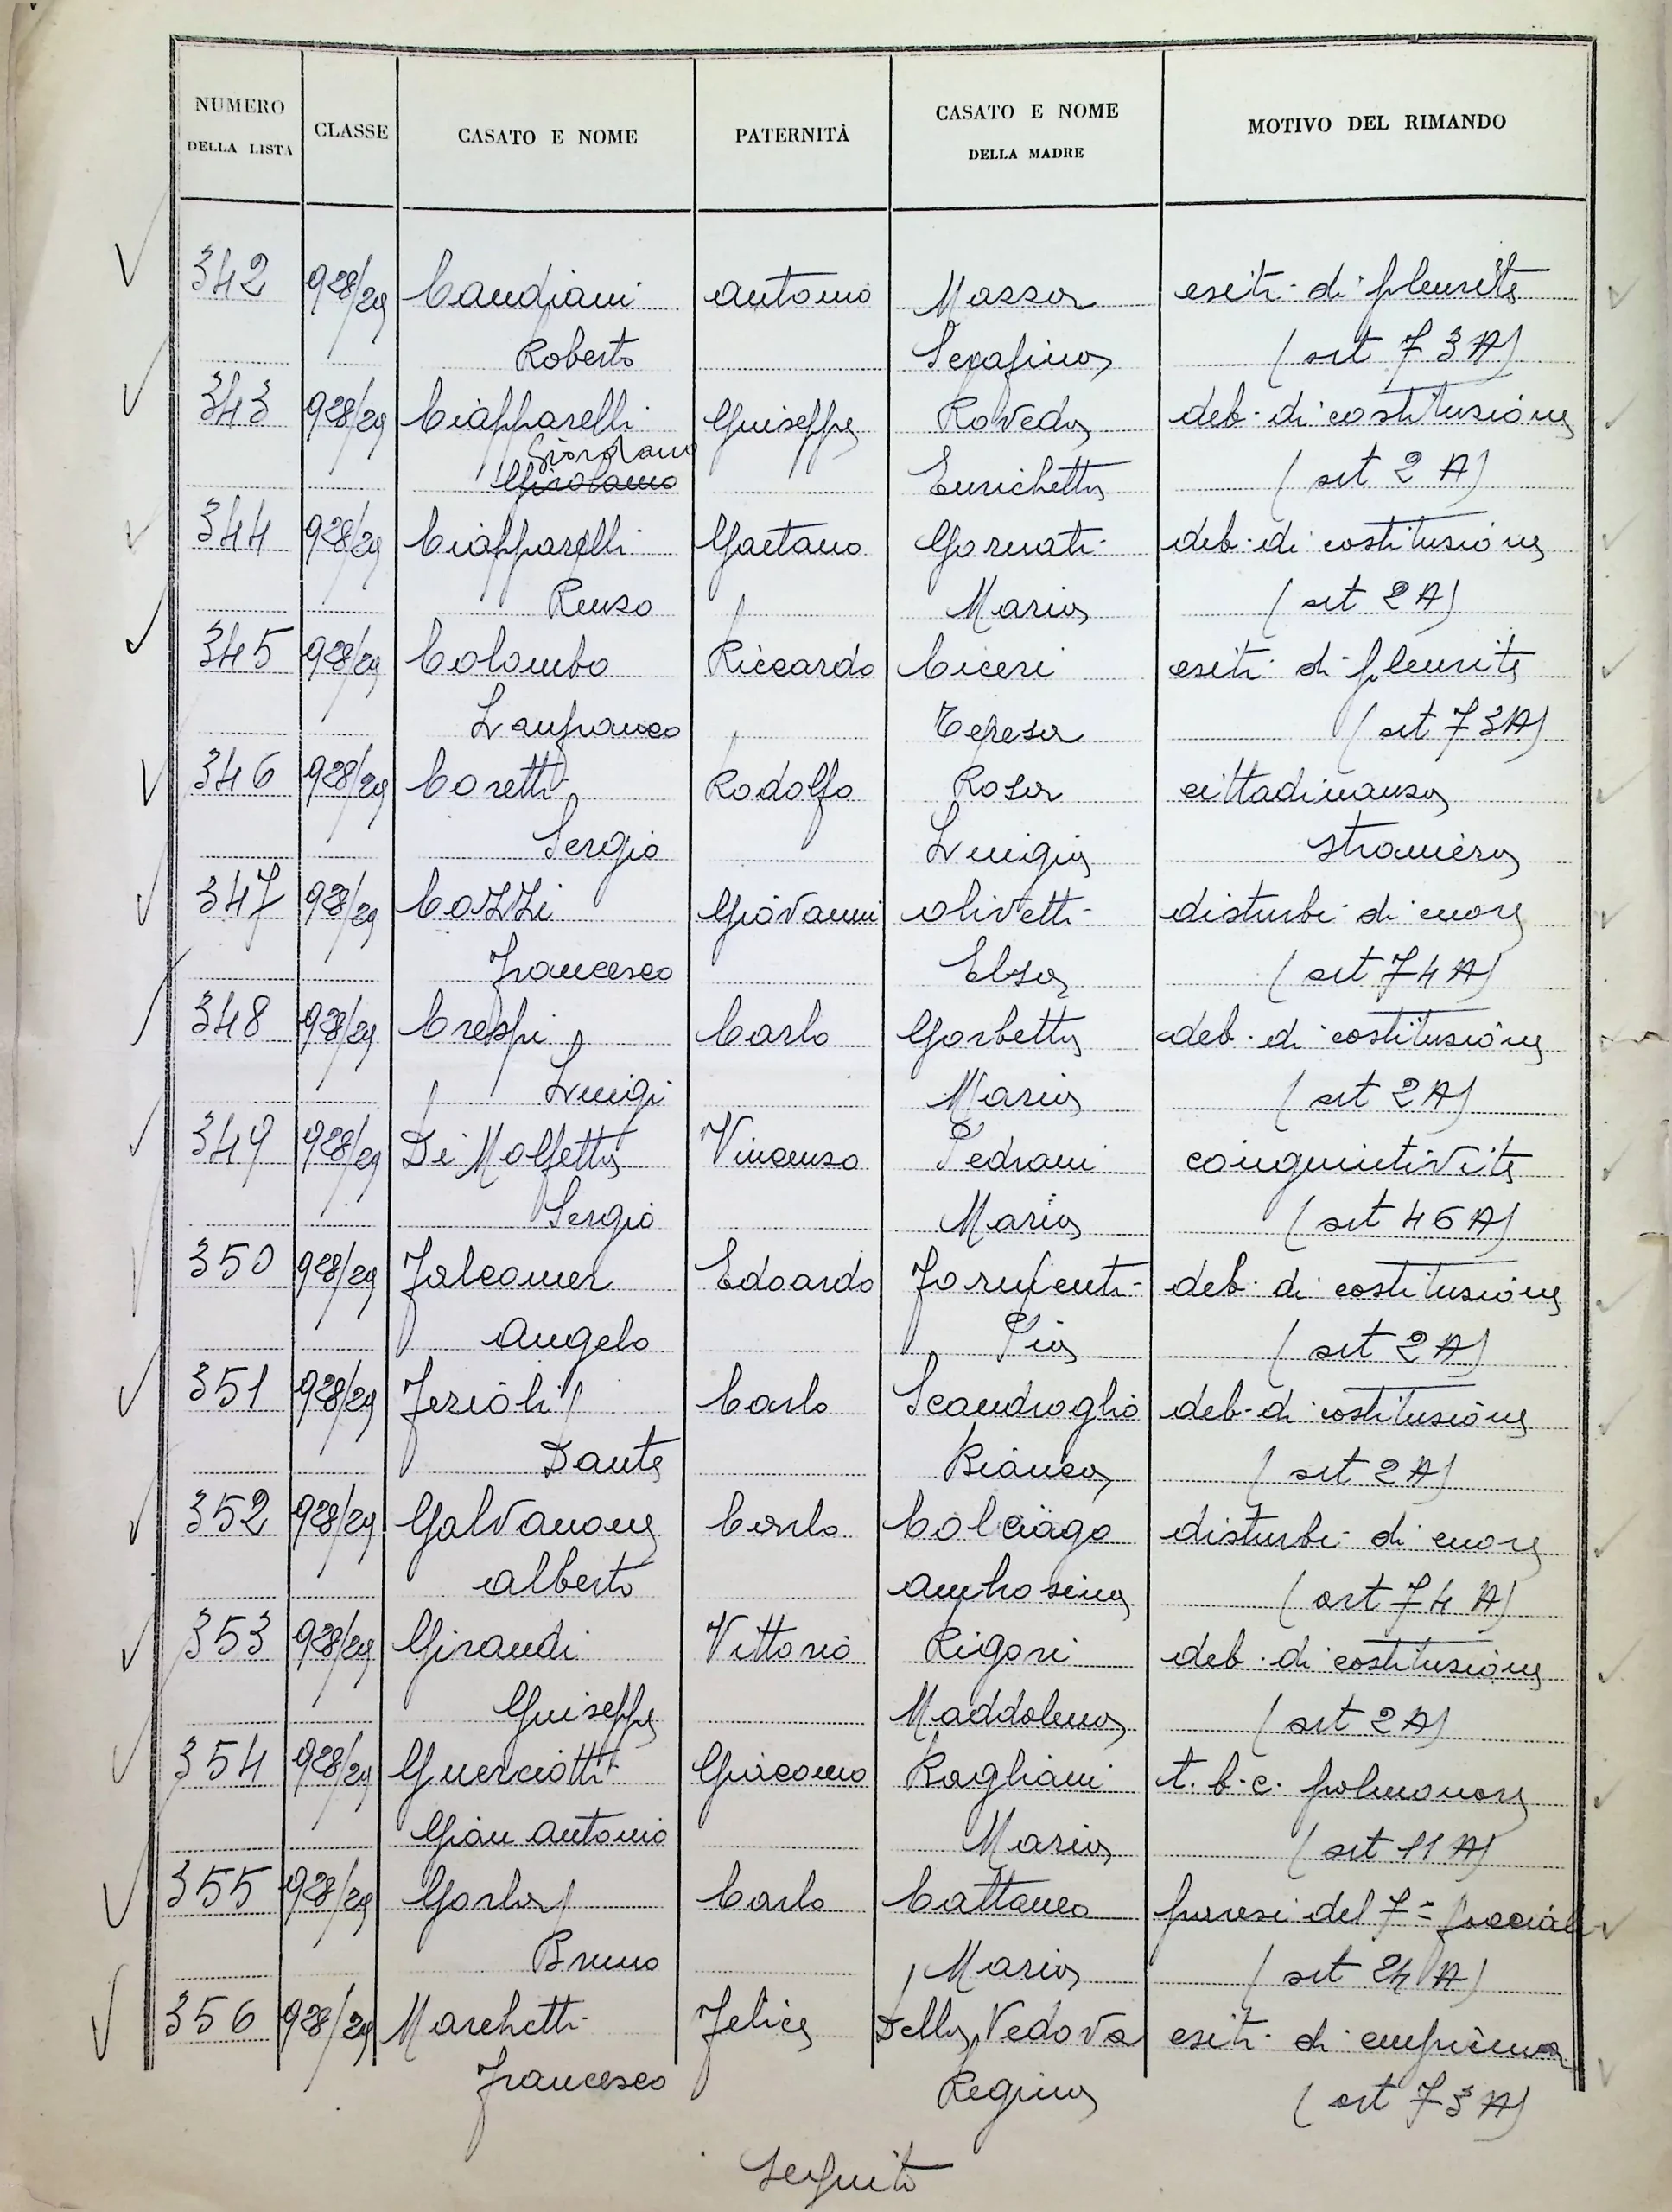 NUMERO DELLA LISTA CLASSE CASATO E NOME PATERNITÀ CASATO E NOME DELLA MADRE MOTIVO DEL RIMANDO
342 928/29 Candiani Antonio Mazza esiti di pleurite
Roberto Serafina (art 73A)
343 928/29 Ciapparelli Giuseppe Roveda deb. di costituzione
Giordano
Girolamo Enrichetta (art 2 A)
344 928/29 Ciapparelli Gaetano Gornati deb. di costituzione
Renzo Maria (art 2A)
345 928/29 Colombo Riccardo Ciceri esiti di pleurite
Lanfranco Teresa (art 73A)
346 928/29 Coretti Rodolfo Rosa cittadinanza
Sergio Luigia straniera
347 928/29 Cozzi Giovanni Olivetti disturbi di cuore
Francesco Elsa (art 74A)
348 928/29 Crespi Carlo Garbetta deb. di costituzione
Luigi Maria (art 2A)
349 928/29 Di Molfetta Vincenzo Pedrani conguintivite
Sergio Maria (art 46A)
350 928/29 Falcomer Edoardo deb. di costituzione
Angelo Pia (art 2A)
351 928/29 Ferioli Carlo Scandroglio deb. di costituzione
Dante Bianca (art 2A)
352 928/29 Galvanone Carlo Colciago disturbi di cuore
Alberto (art 74 A)
353 928/29 Giraudi Vittorio Rigori deb. di costituzione
Giuseppe Maddalena (art 2A)
354 928/29 Guerciotti Giacomo Ragliani t.b.c. polmonare
Gian Antonio Maria (art 11A)
355 928/29 Carlo Cattaneo paresi del 7= facciale
Bruno Maria (art 24 A)
356 928/29 Marchetti Felice Della Vedova esiti di empiema
Francesco Regina (art 73A)
Seguito